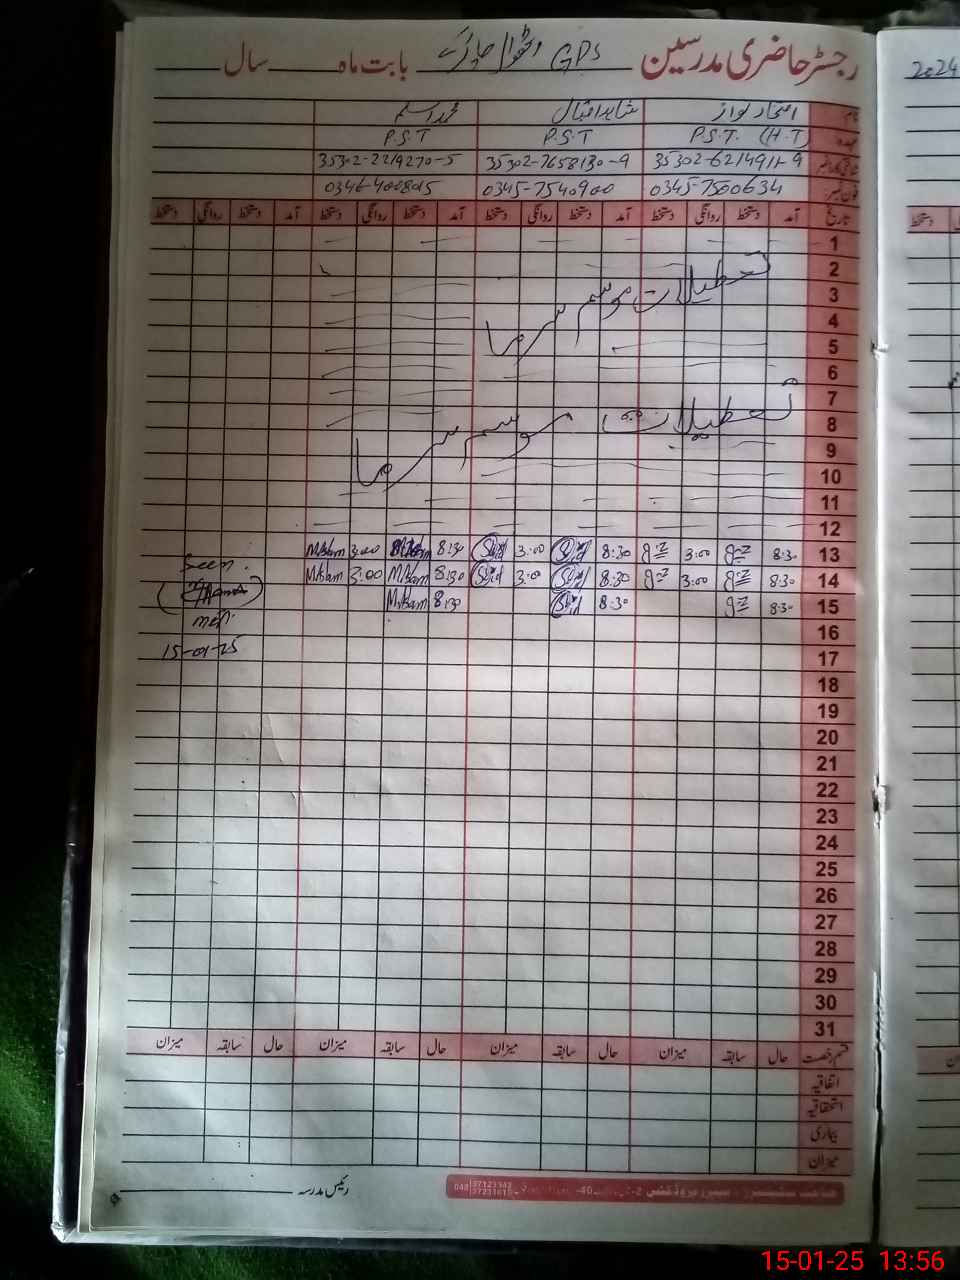 رجسٹر حاضری مدرسین GPS وٹھوال چاڑکے بابت ماہ سال
2024
نام امتحاز نواز شاہد اقبال محمد اسلم
عہدہ P.S.T. (H.T) P.S.T P.S.T
شناختی کارڈ نمبر 35302-6214911-9 35302-7658130-9 35302-2219270-5
فون نمبر 0345-7500634 0345-7540900 0346-4008015
تاریخ آمد دستخط روانگی دستخط آمد دستخط روانگی دستخط آمد دستخط روانگی دستخط آمد دستخط روانگی دستخط
دستخط
1
2
تعطیلات موسم سرما
3
4
5
6
7
تعطیلات موسم سرما
8
9
10
11
12
13 8:30 3:00 8:30 3:00 8:30 M.Aslam 3:00 M.Aslam
Seen.
14 8:30 3:00 8:30 3:00 8:30 M.Aslam 3:00 M.Aslam
15 8:30 8:30 8:30 M.Aslam
16
15-01-25
17
18
19
20
21
22
23
24
25
26
27
28
29
30
31
قسم رخصت حال سابقہ میزان حال سابقہ میزان حال سابقہ میزان حال سابقہ میزان
اتفاقیہ
استحقاقیہ
بیماری
میزان
رئیس مدرسہ
15-01-25 13:56